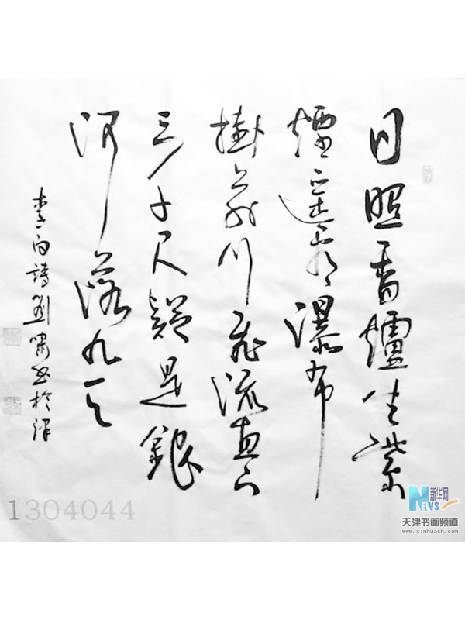 日照香爐生紫
煙遥看瀑布
掛前川飛流直下
三千尺疑是銀
河落九天
李白詩劉書於津
1304044
新华网
NEWS
天津书画频道
www.xinhuanet.com